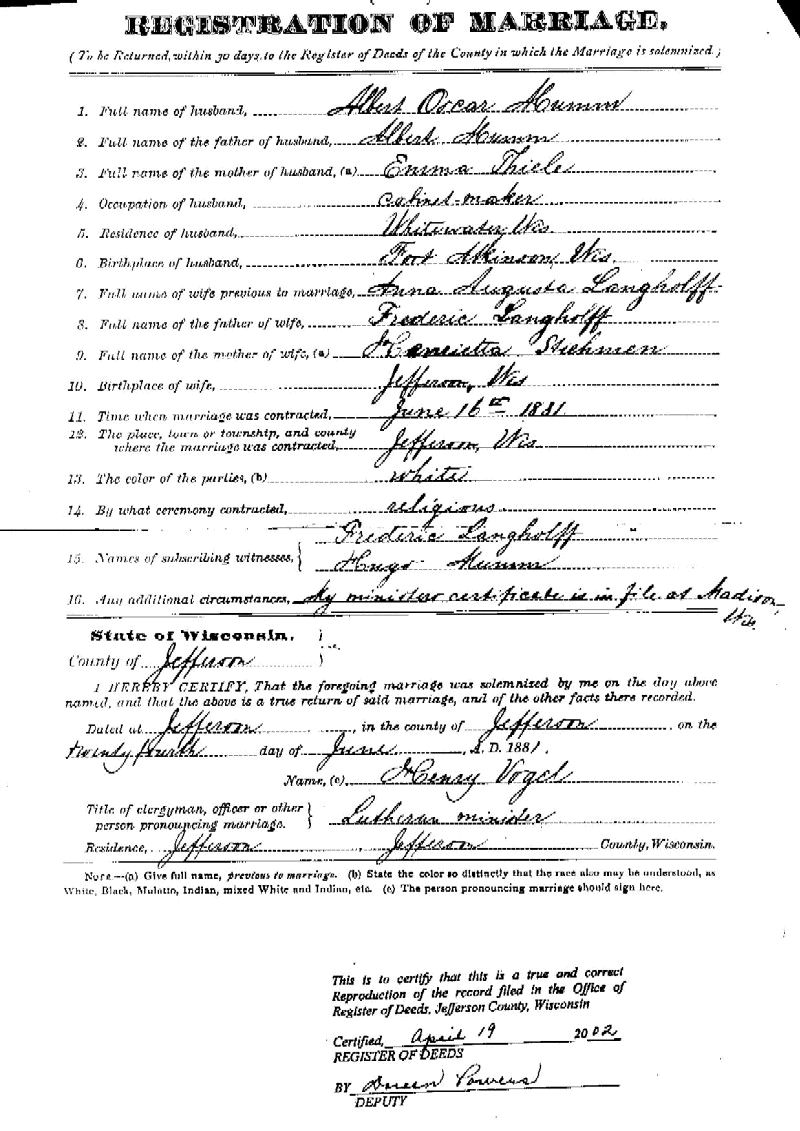 REGISTRATION OF MARRIAGE.
(To be Returned, within 30 days, to the Register of Deeds of the County in which the Marriage is solemnized.)
1. Full name of husband, Albert Oscar Mumm
2. Full name of the father of husband, Albert Mumm
3. Full name of the mother of husband, (a) Emma Thiele
4. Occupation of husband, cabinet-maker
5. Residence of husband, Whitewater, Wis
6. Birthplace of husband, Fort Atkinson, Wis.
7. Full name of wife previous to marriage, Anna Augusta Langholff
8. Full name of the father of wife, Frederic Langholff
9. Full name of the mother of wife, (a) Henrietta Stiehmen
10. Birthplace of wife, Jefferson, Wis
11. Time when marriage was contracted, June 16th 1881
12. The place, town or township, and county
where the marriage was contracted, Jefferson, Wis
13. The color of the parties, (b) white
14. By what ceremony contracted, religious
Frederic Langholff
15. Names of subscribing witnesses, }
Hugo Mumm
16. Any additional circumstances, My ministers certificate is in file at Madison,
Wis.
State of Wisconsin, }
County of Jefferson }
I HEREBY CERTIFY, That the foregoing marriage was solemnized by me on the day above
named, and that the above is a true return of said marriage, and of the other facts there recorded.
Dated at Jefferson, in the county of Jefferson on the
twenty fourth day of June, A. D. 1881.
Name, (c) Henry Vogel
Title of clergyman, officer or other }
person pronouncing marriage. Lutheran minister
Residence, Jefferson Jefferson County, Wisconsin.
NOTE.—(a) Give full name, previous to marriage. (b) State the color so distinctly that the race also may be understood, as
White, Black, Mulatto, Indian, mixed White and Indian, etc. (c) The person pronouncing marriage should sign here.
This is to certify that this is a true and correct
Reproduction of the record filed in the Office of
Register of Deeds, Jefferson County, Wisconsin
Certified, April 19 2002
REGISTER OF DEEDS
BY Doreen Powers
DEPUTY